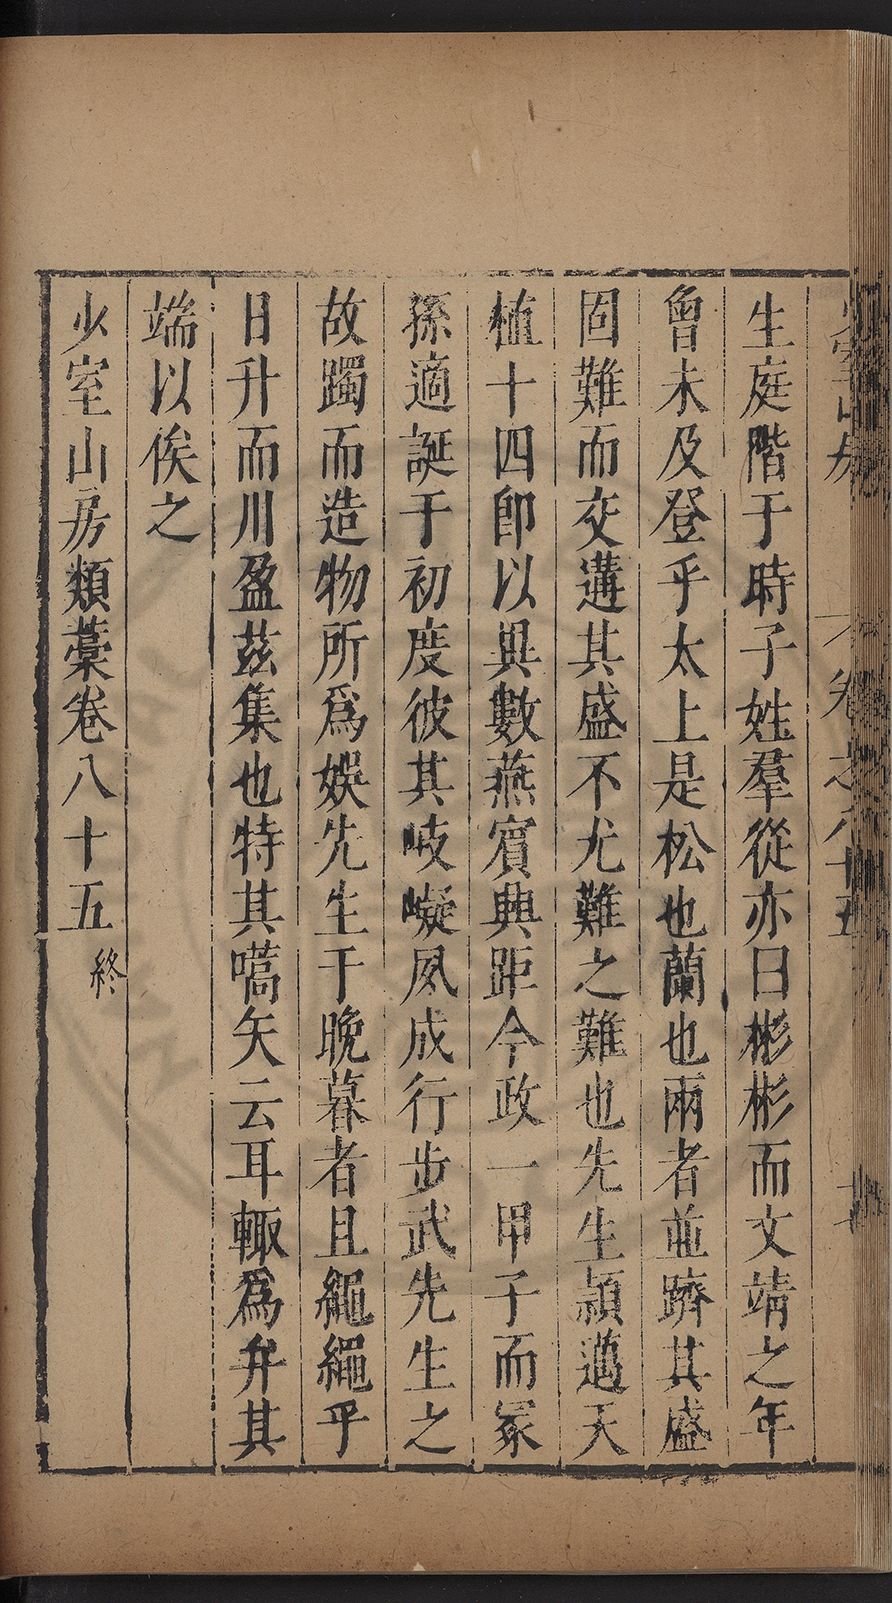 生庭階于時子姓羣從亦曰彬彬而文靖之年
曾未及登乎太上是松也蘭也兩者並躋其盛
固難而交遘其盛不尤難之難也先生頴邁天
植十四卽以異數燕賓典距今政一甲子而冢
孫適誕于初度彼其岐嶷夙成行步武先生之
故躅而造物所爲娛先生于晚暮者且繩繩乎
日升而川盈茲集也特其嚆矢云耳輙爲弁其
端以俟之
少室山房類藁卷八十五 終